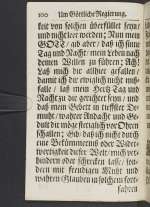 100 Um Göttliche Regierung.
keit von solchen überfüllet seyn/
und nicht leer werden; Nun mein
GOTT/ gib aber/ daß ich seine
Tag und Nacht mein Leben nach
deinem Willen zu führen; Ach!
laß mich dir allhier gefallen/
damit ich dir ewiglich nicht miß-
falle/ laß mein Hertz Tag und
Nacht zu dir gerichtet seyn/ und
daß mein Gebett in tieffster De-
muht/ wahrer Andacht und Ge-
dult die möge stetiglich vor Ohren
schallen; Gib/ daß ich nicht durch
eine Bekümmernus oder Wider-
wertigkeit dieser Welt/ mich ver-
hindern oder schrecken lasse/ son-
dern mit freudigem Muht und
wahrem Glauben in solchem fort-
fahren